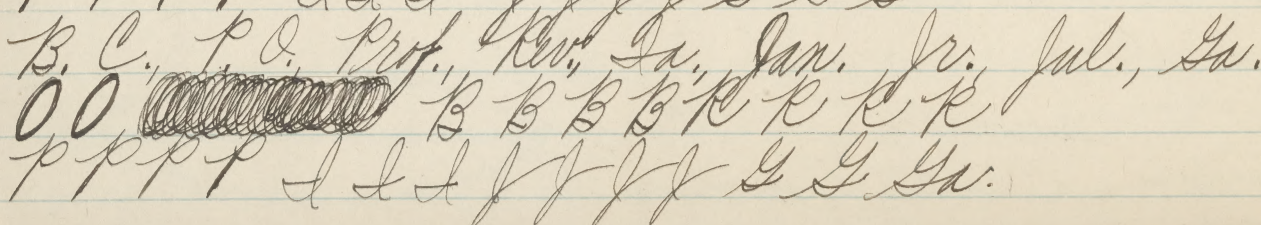 B. C., P. O., Prof., Rev., Ia., Jan. Jr., Jul., Ga.
O O B B B B R R R R
P P P P I I I J J J J G G Ga.